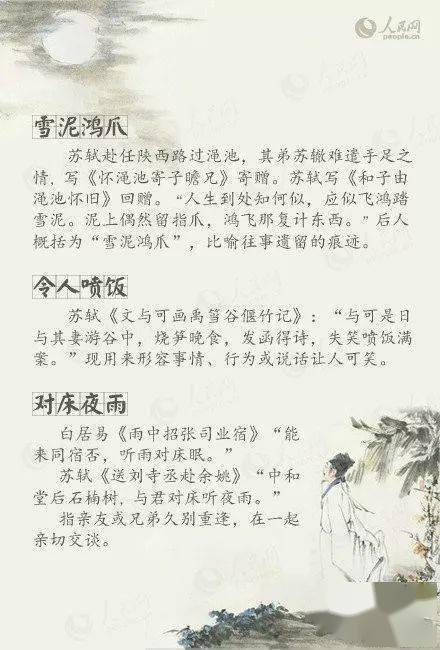 人民网
people.cn
雪泥鸿爪
苏轼赴任陕西路过渑池，其弟苏辙难遣手足之
情，写《怀渑池寄子瞻兄》寄赠。苏轼写《和子由
渑池怀旧》回赠。“人生到处知何似，应似飞鸿踏
雪泥。泥上偶然留指爪，鸿飞那复计东西。”后人
概括为“雪泥鸿爪”，比喻往事遗留的痕迹。
令人喷饭
苏轼《文与可画筼筜谷偃竹记》：“与可是日
与其妻游谷中，烧笋晚食，发函得诗，失笑喷饭满
案。”现用来形容事情、行为或说话让人可笑。
对床夜雨
白居易《雨中招张司业宿》“能
来同宿否，听雨对床眠。”
苏轼《送刘寺丞赴余姚》“中和
堂后石楠树，与君对床听夜雨。”
指亲友或兄弟久别重逢，在一起
亲切交谈。